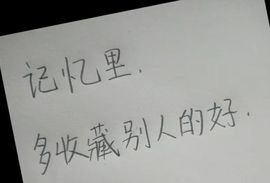 记忆里.
多收藏别人的好.